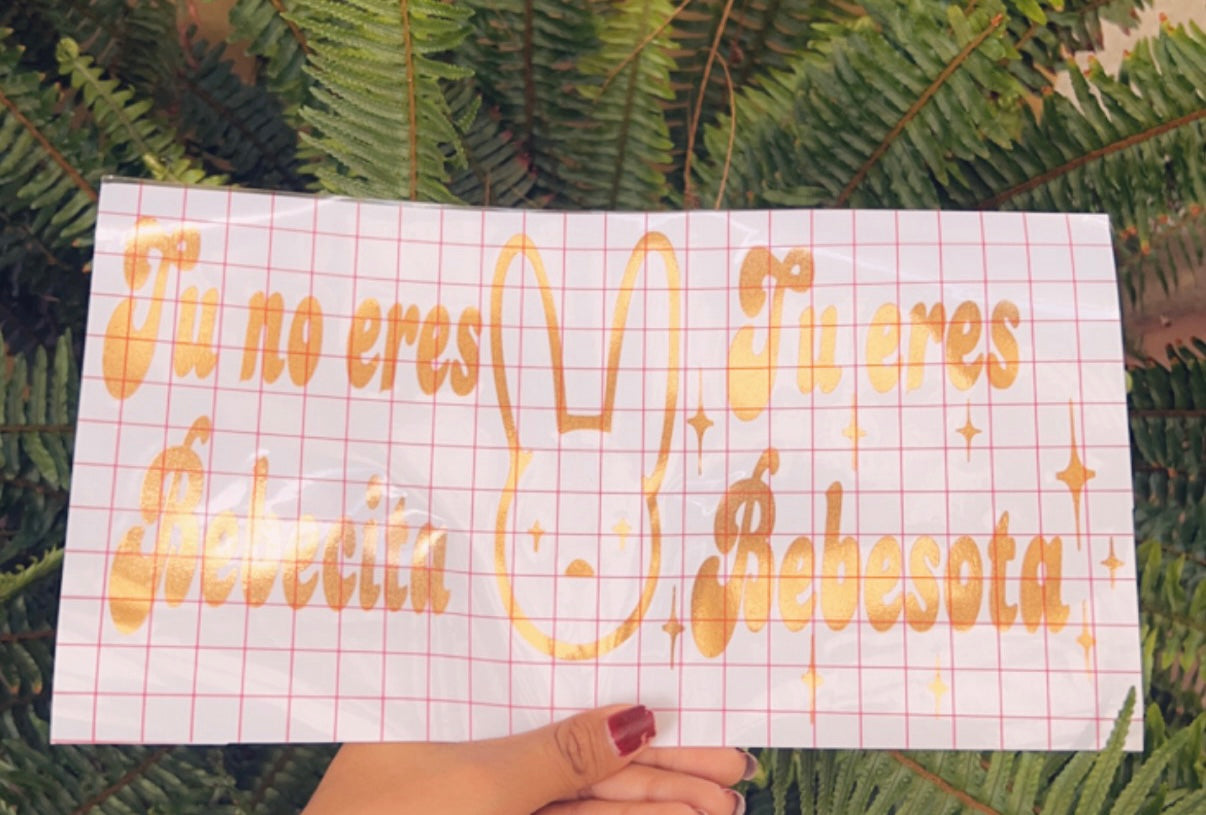 Tu no eres
Bebecita
Tu eres
Bebesota